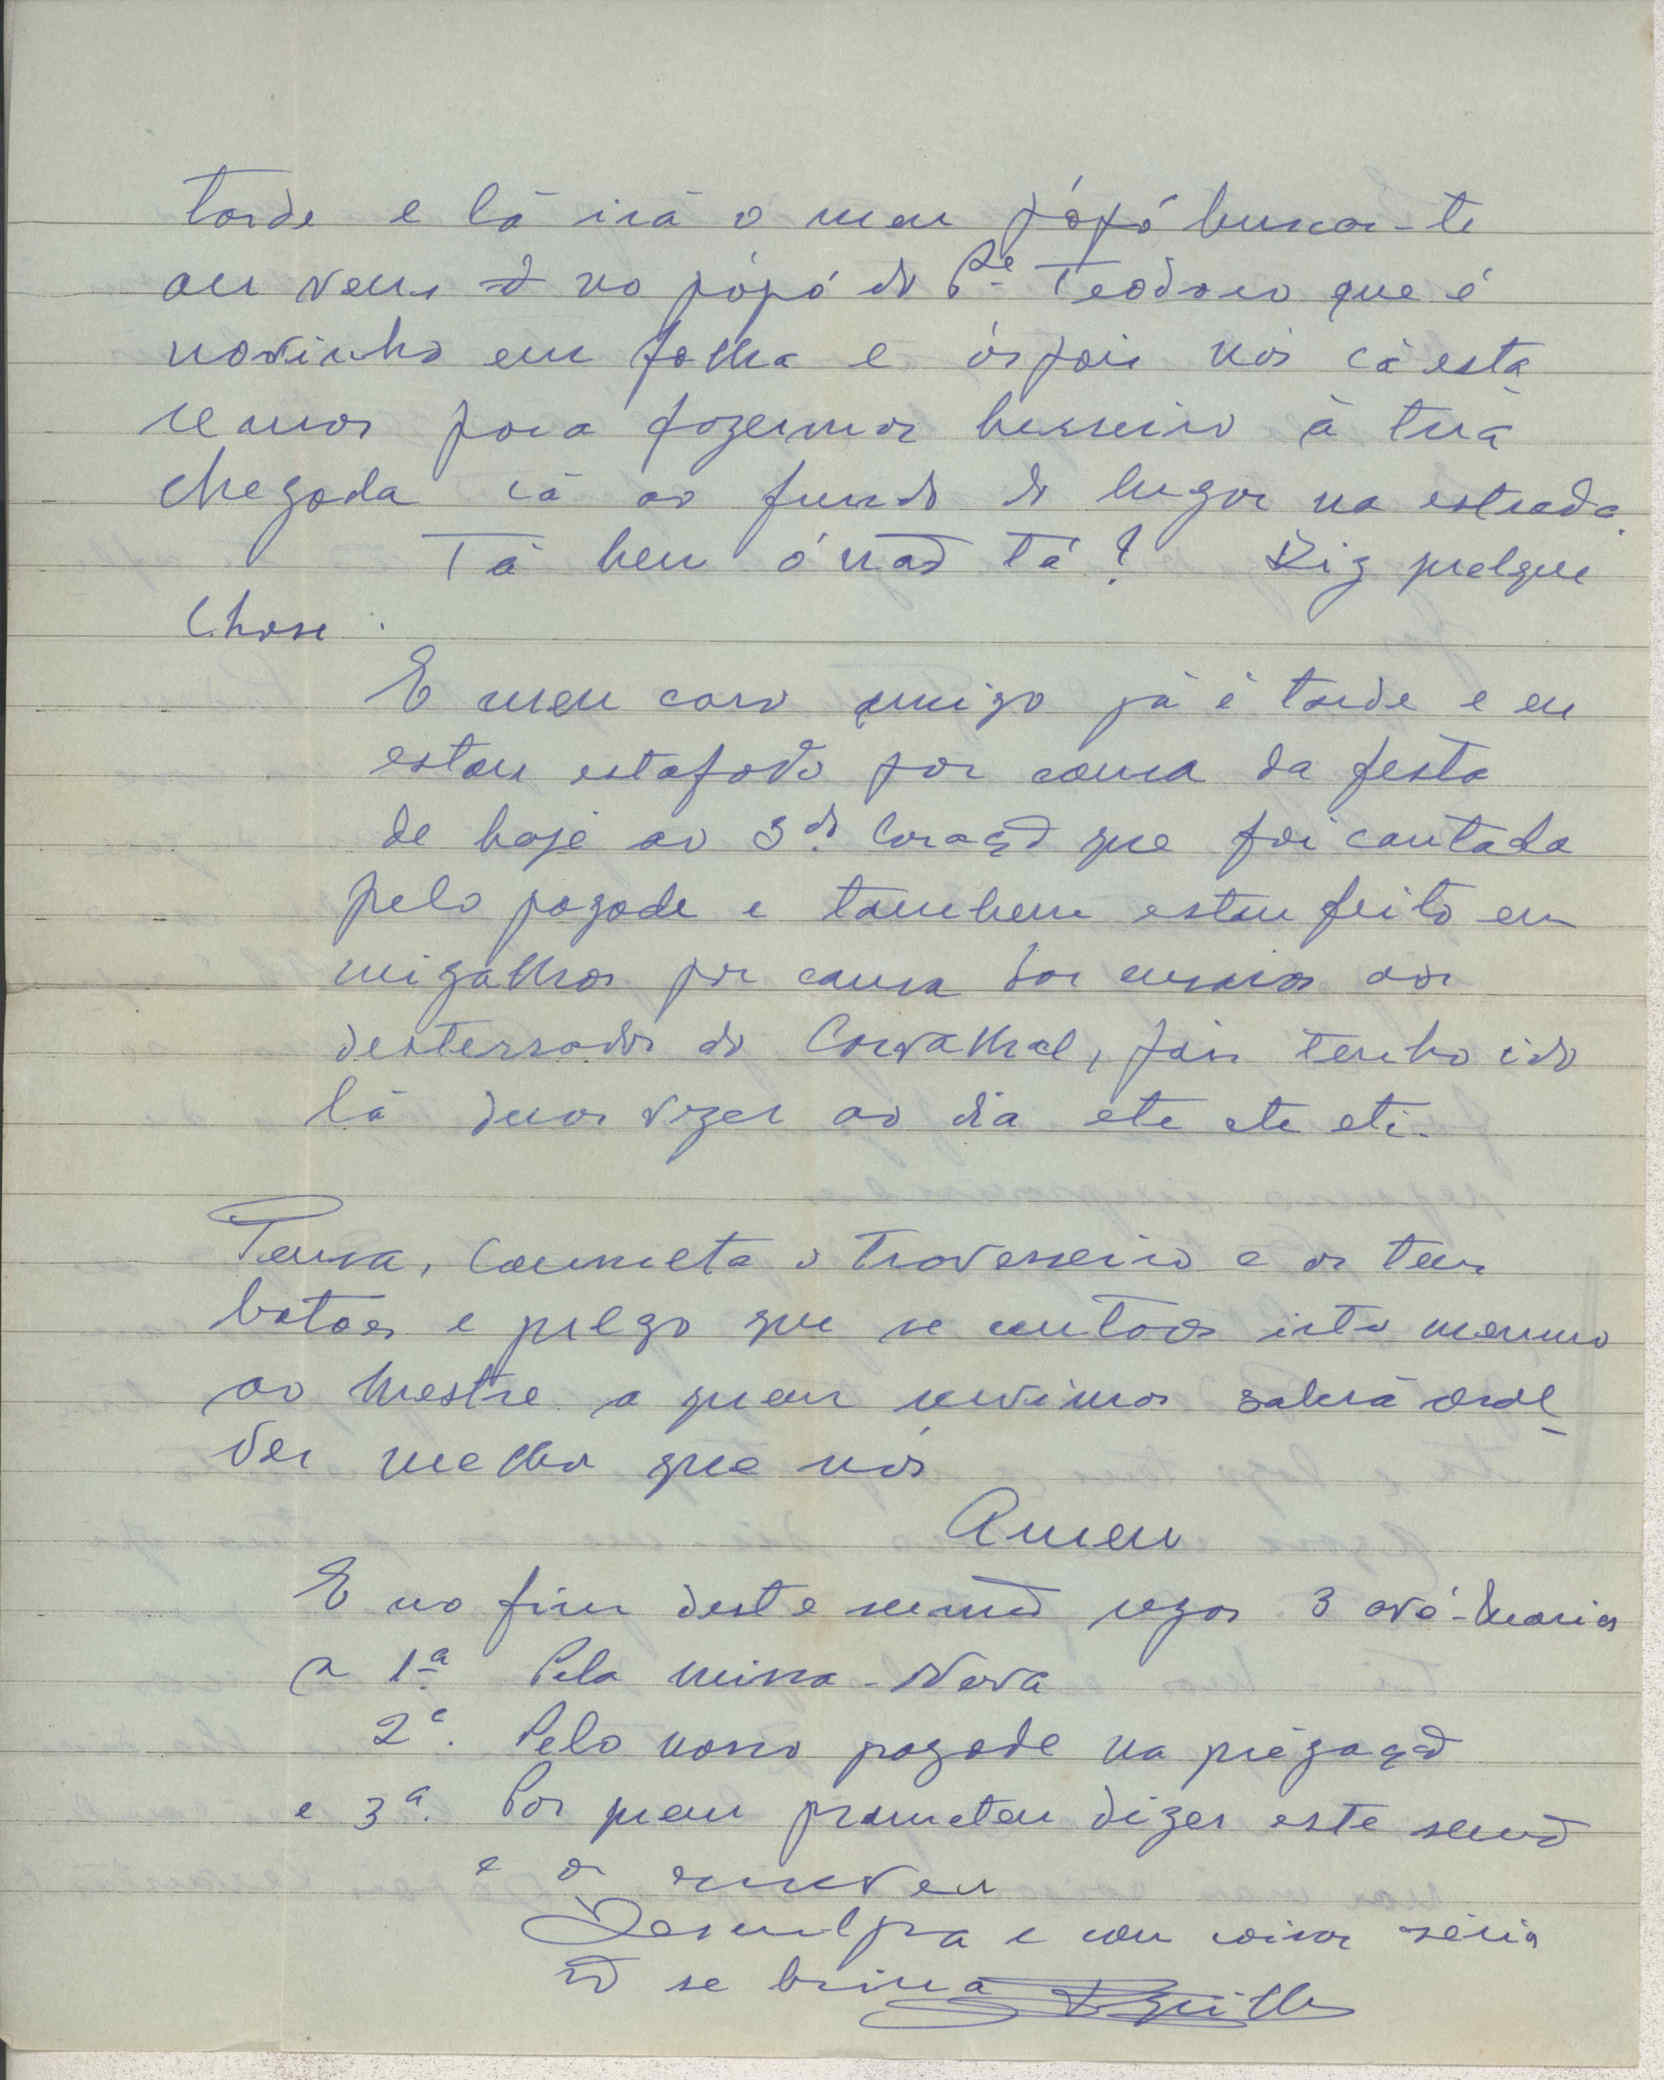 tarde e lá irá o meu pópó buscar-te
ou vens no pópó do Pe Teodoro que é
novinho em folha e óspois nós cá esta
remos para fazermos barreiro à tua
chegada cá ao fundo do lugar na estrada.
Tá bem ó não tá? Diz quelque
chose.
E meu caro amigo já é tarde e eu
estou estafado por causa da festa
de hoje ao S.do Coração que foi cantada
pelo pagode e tambem estou feito em
migalhas por causa dos ensaios aos
desterrados do Carvalhal, pois tenho ido
lá duas vezes ao dia etc etc etc.
Pensa, consulta o travesseiro e os teus
botões e prega que se cantas isto mesmo
ao Mestre a quem servimos saberá
melhor que nós
Amen
E no fim deste sermão rezas 3 avé-Marias
a 1ª Pela missa-Nova
2ª. Pelo nosso pagode na prégação
e 3ª. Por quem prometeu dizer este sermão
e o
Desculpa e com coisas sérias
não se brinca